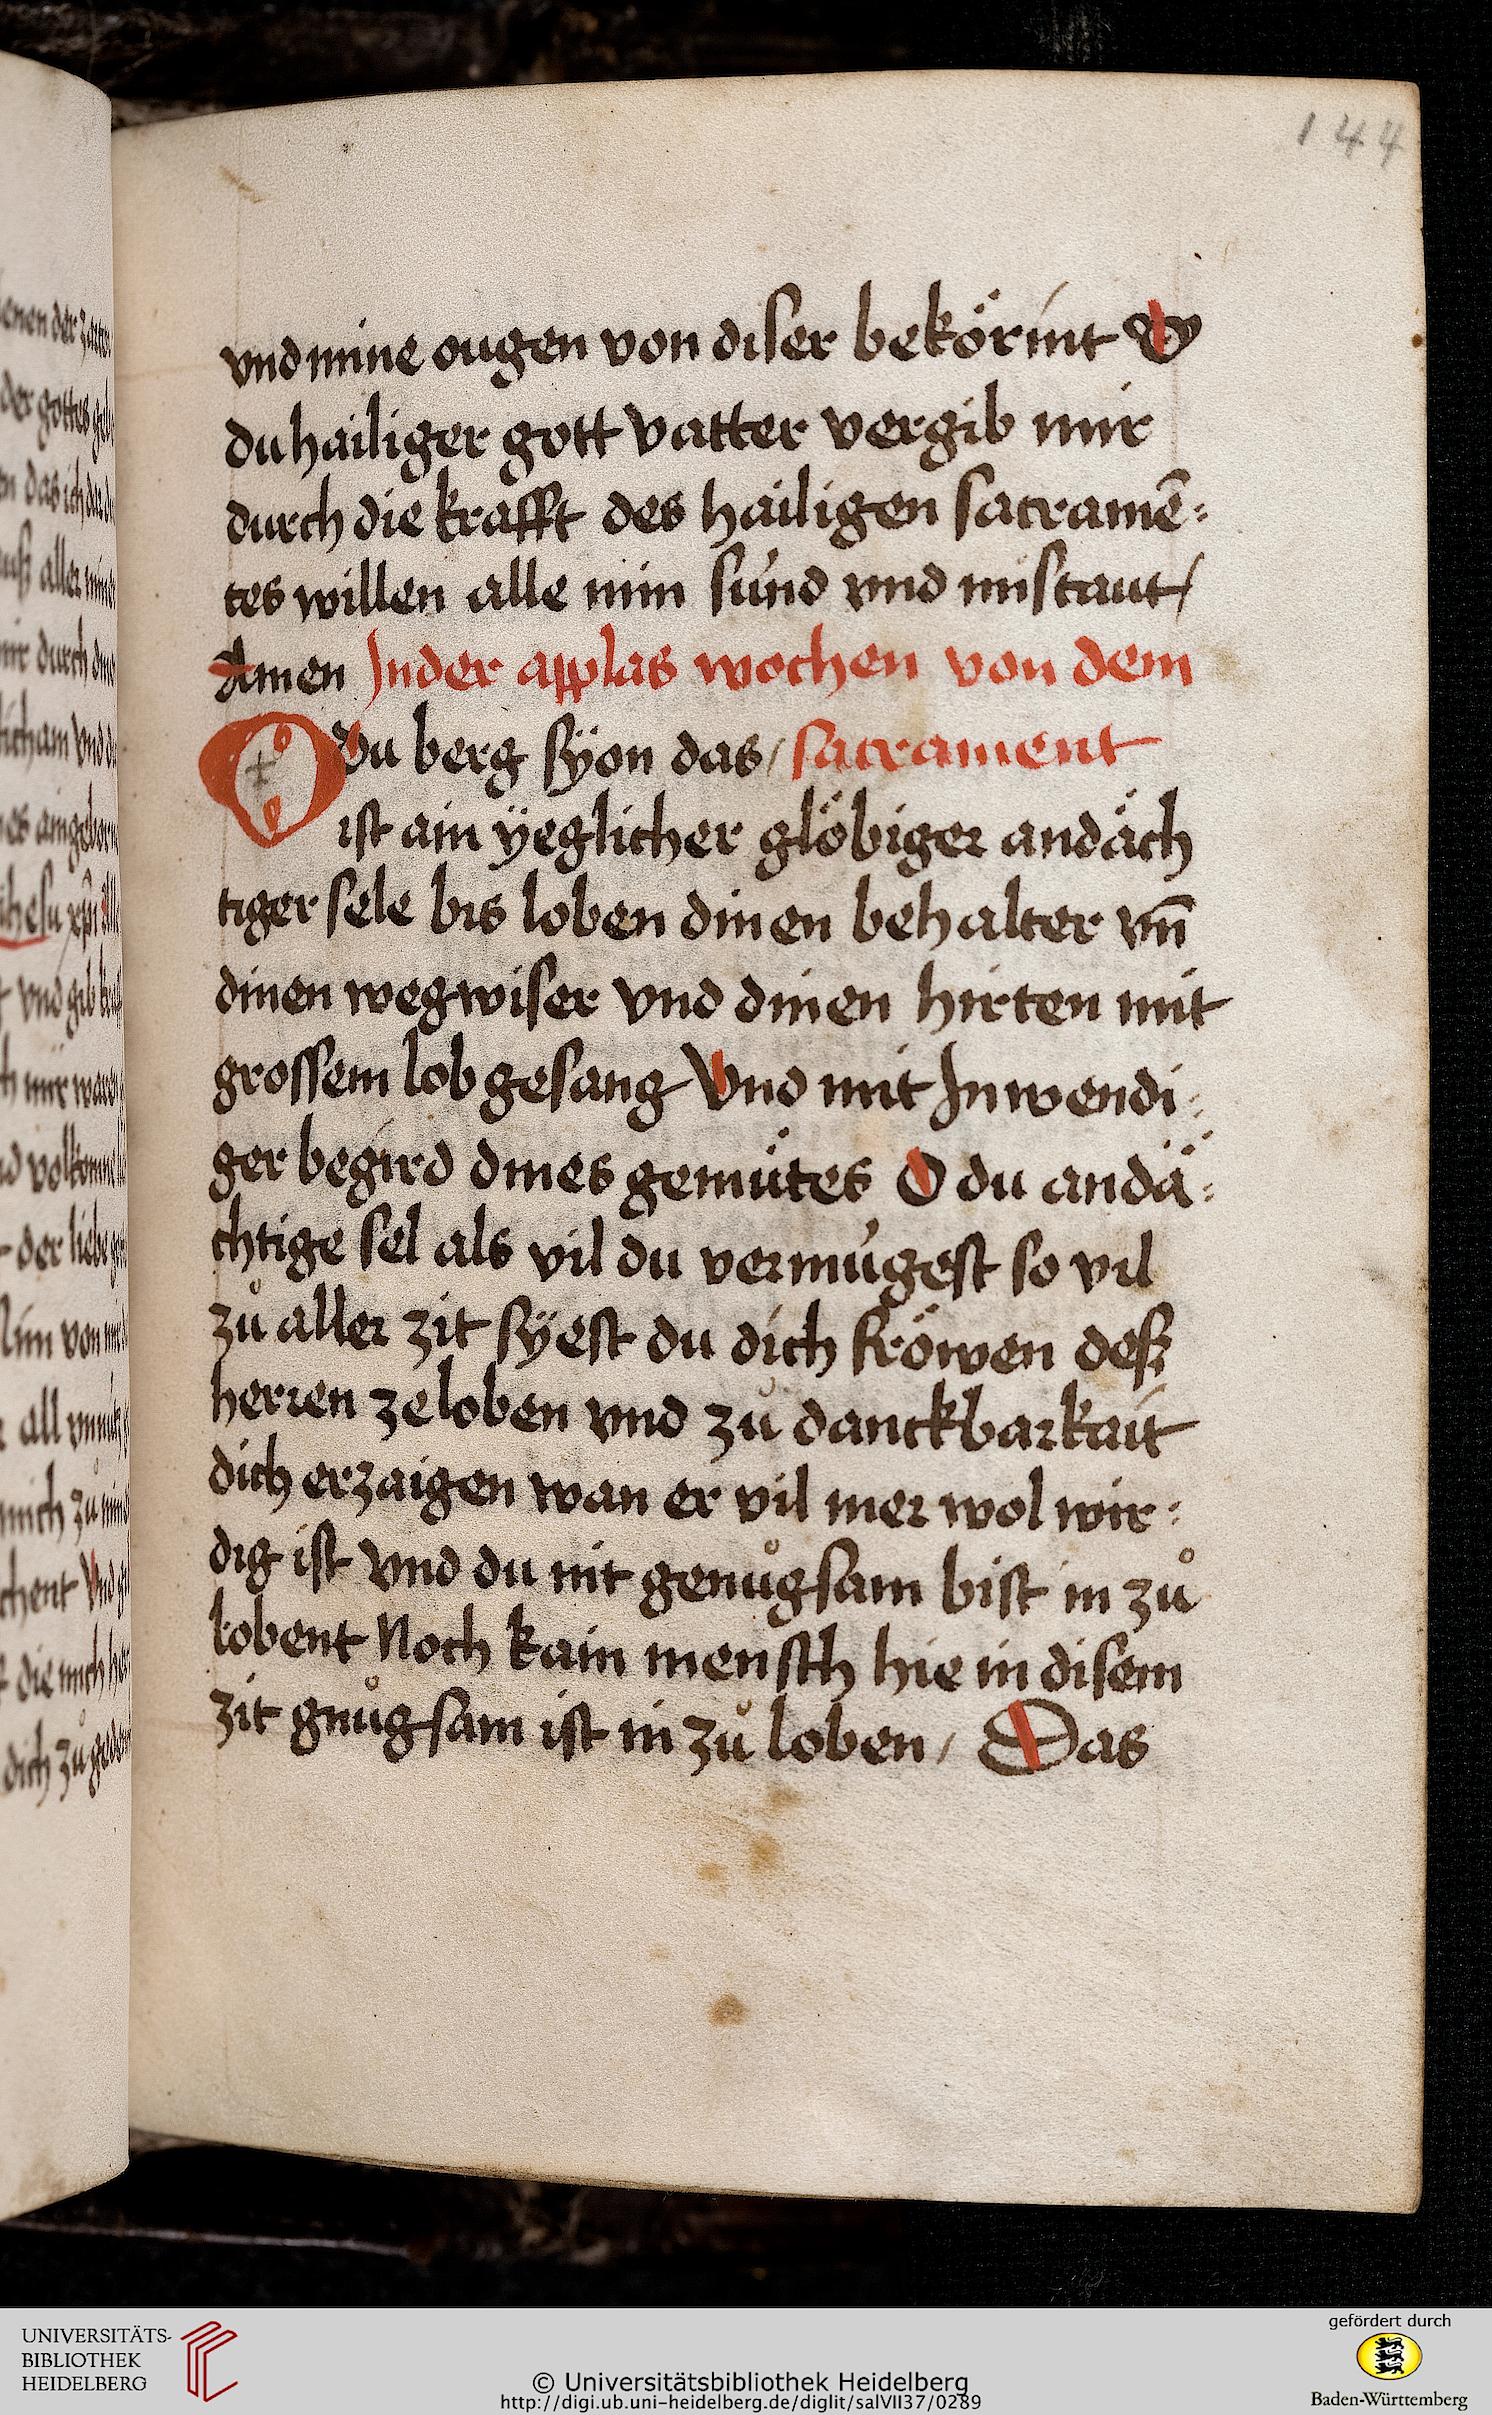 144
vnd mine ougen von diser bekörint O
du hailiger gott vatter vergib mir
durch die krafft des hailigen sacramē:
tes willen alle min sünd vnd mistaut/
Amen Jn der applas wochen von dem
O Du berg sÿon das/ sacrament
ist ain ÿeglicher glöbiger andäch
tiger sele bis loben dinen behalter vn̄
dinen wegwiser vnd dinen hirten mit
grossem lob gesang Vnd mit Jnwendi:
ger begird dines gemütes O du andä:
chtige sel als vil du vermügest so vil
zů aller zit sÿest du dich fröwen deß
herren ze loben vnd zů danckbarkait
dich erzaigen wan er vil mer wol wir:
dig ist vnd du nit genůgsam bist in zů
lobent Noch kain mensch hie in disem
zit gnůgsam ist in zů loben/ Das
UNIVERSITÄTS-
BIBLIOTHEK
HEIDELBERG
© Universitätsbibliothek Heidelberg
http://digi.ub.uni-heidelberg.de/diglit/salVII37/0289
gefördert durch
Baden-Württemberg